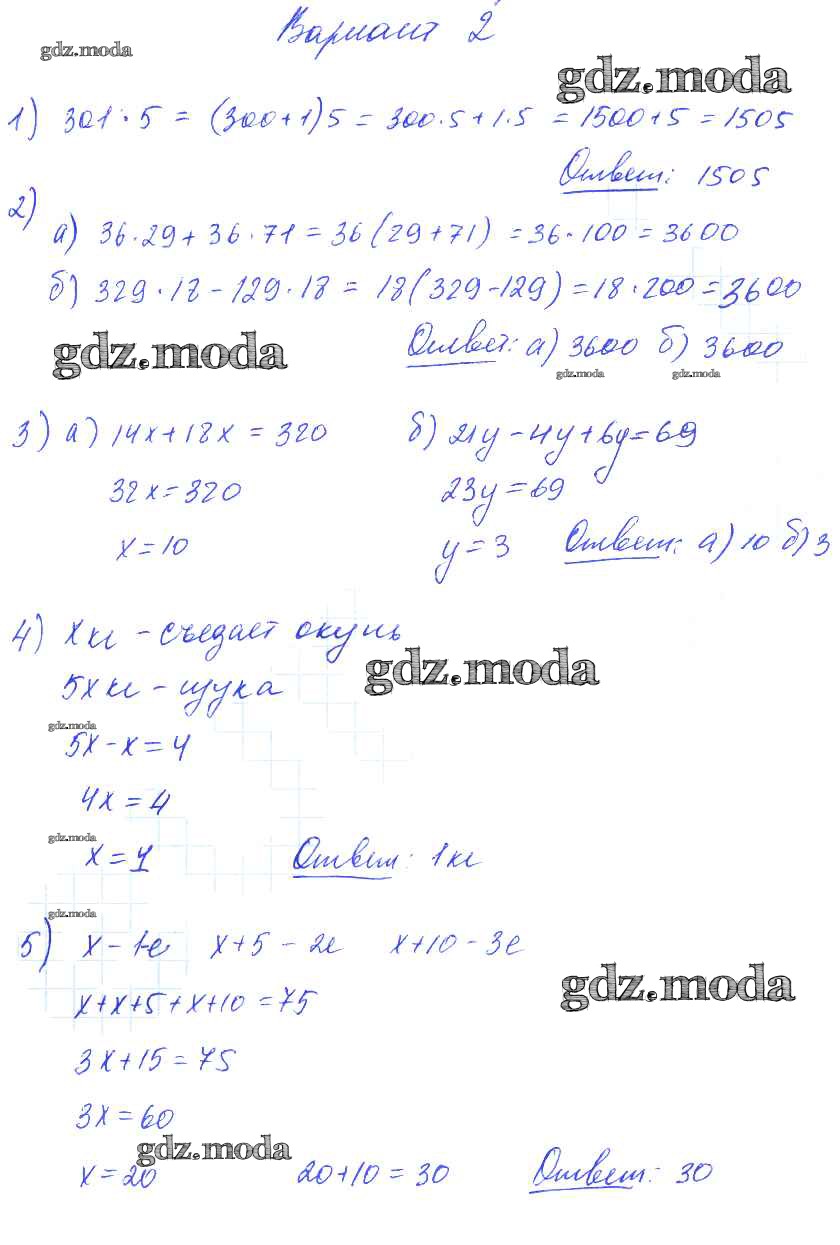 Вариант 2
gdz.moda
gdz.moda
1) 301·5 = (300+1)5 = 300·5+1·5 = 1500+5 = 1505
Ответ: 1505
2)
а) 36·29+36·71 = 36(29+71) = 36·100 = 3600
б) 329·18-129·18 = 18(329-129) = 18·200 = 3600
gdz.moda
Ответ: а) 3600 б) 3600
gdz.moda gdz.moda
3) а) 14x+18x = 320 б) 21y-4y+6y=69
32x=320 23y=69
x=10 y=3 Ответ: а) 10 б) 3
4) x кг - съедает окунь
gdz.moda
5x кг - щука
gdz.moda
5x-x=4
4x=4
gdz.moda
x=1 Ответ: 1кг
gdz.moda
5) x - 1-е x+5 - 2е x+10 - 3е
gdz.moda
x+x+5+x+10=75
3x+15=75
3x=60
gdz.moda
x=20 20+10=30 Ответ: 30